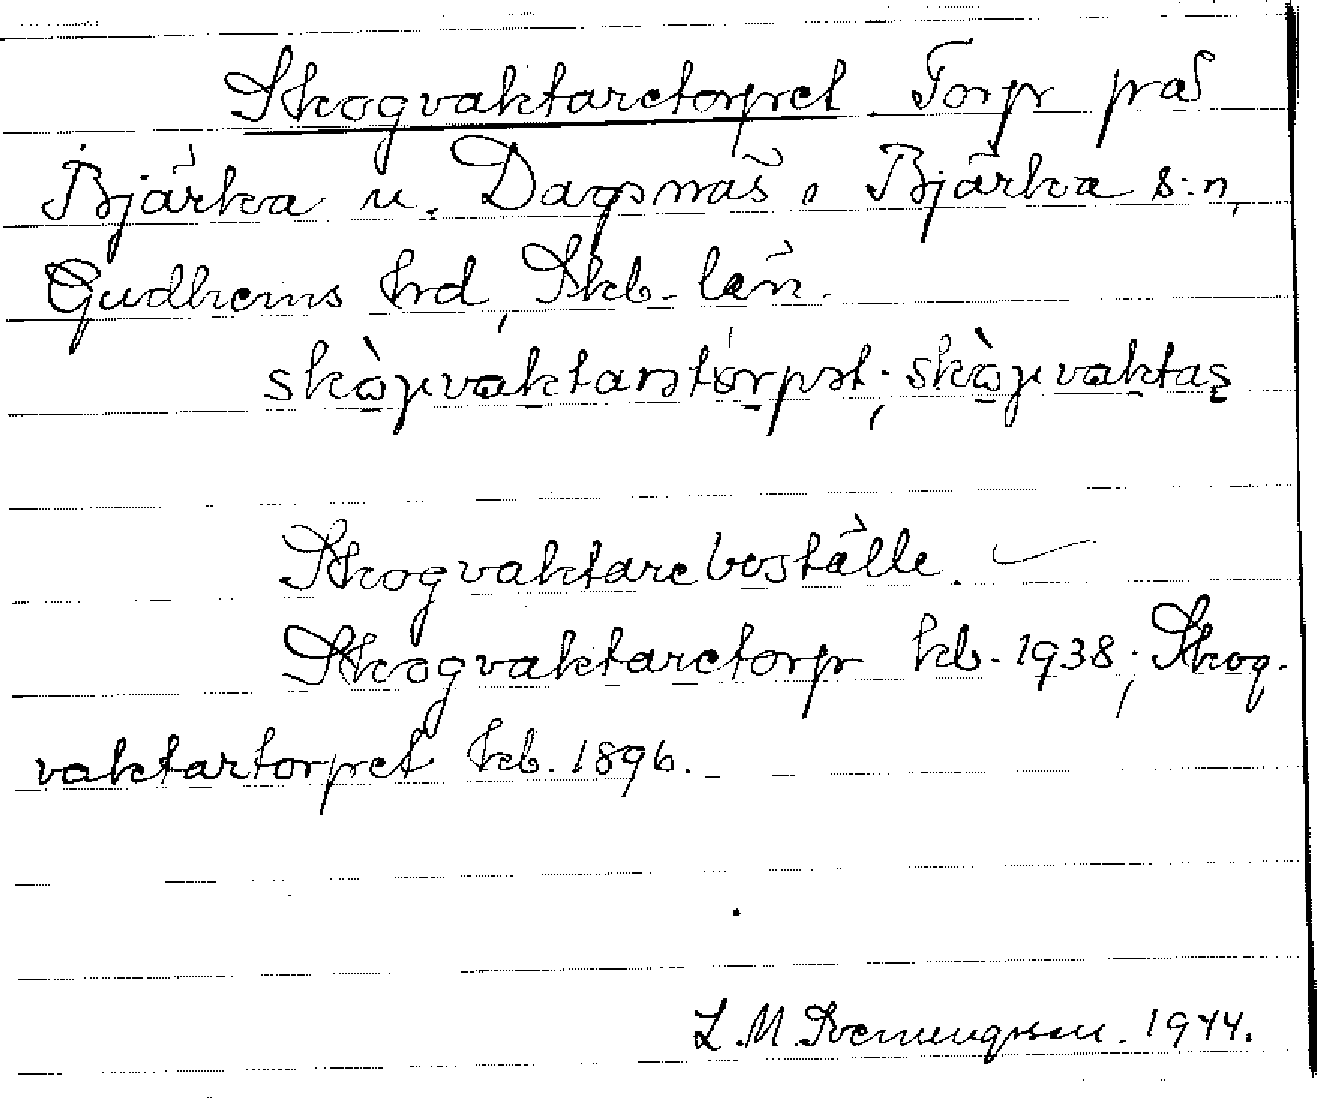 Skogvaktaretorpet Torp på
Bjärka u. Dagsnäs, Bjärka s:n,
Gudhems hrd, Skb. län.
skògvaktarətórpət; skògvaktas
Skogvaktareboställe.
Skogvaktaretorp kb. 1938; Skog-
vaktartorpet kb. 1896.
L. M. Svenungsson. 1944.